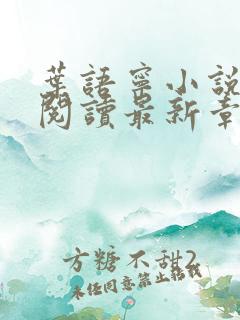 葉語寧小說
閱讀最新章
方糖不甜2
未經同意禁止轉載